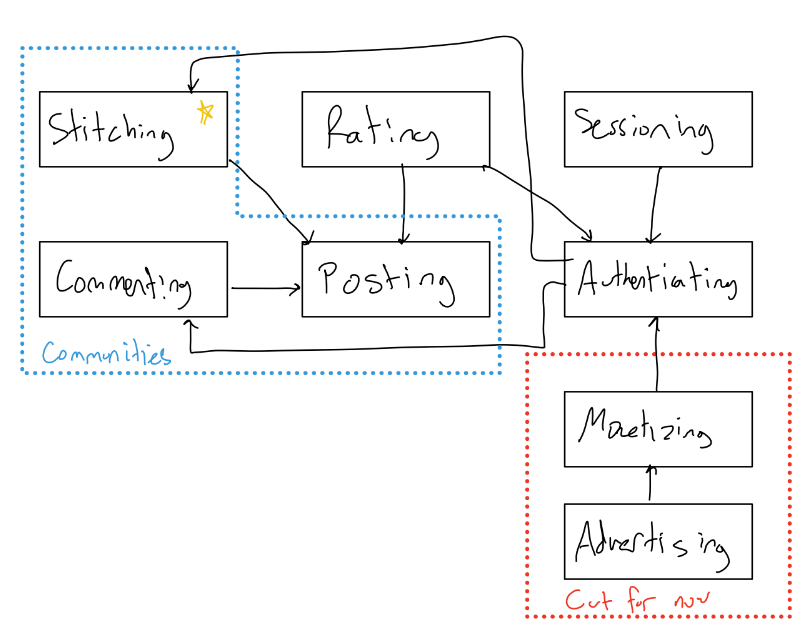 Stitching
Rating
Sessioning
Commenting
Posting
Authenticating
Communities
Monetizing
Advertising
Cut for now